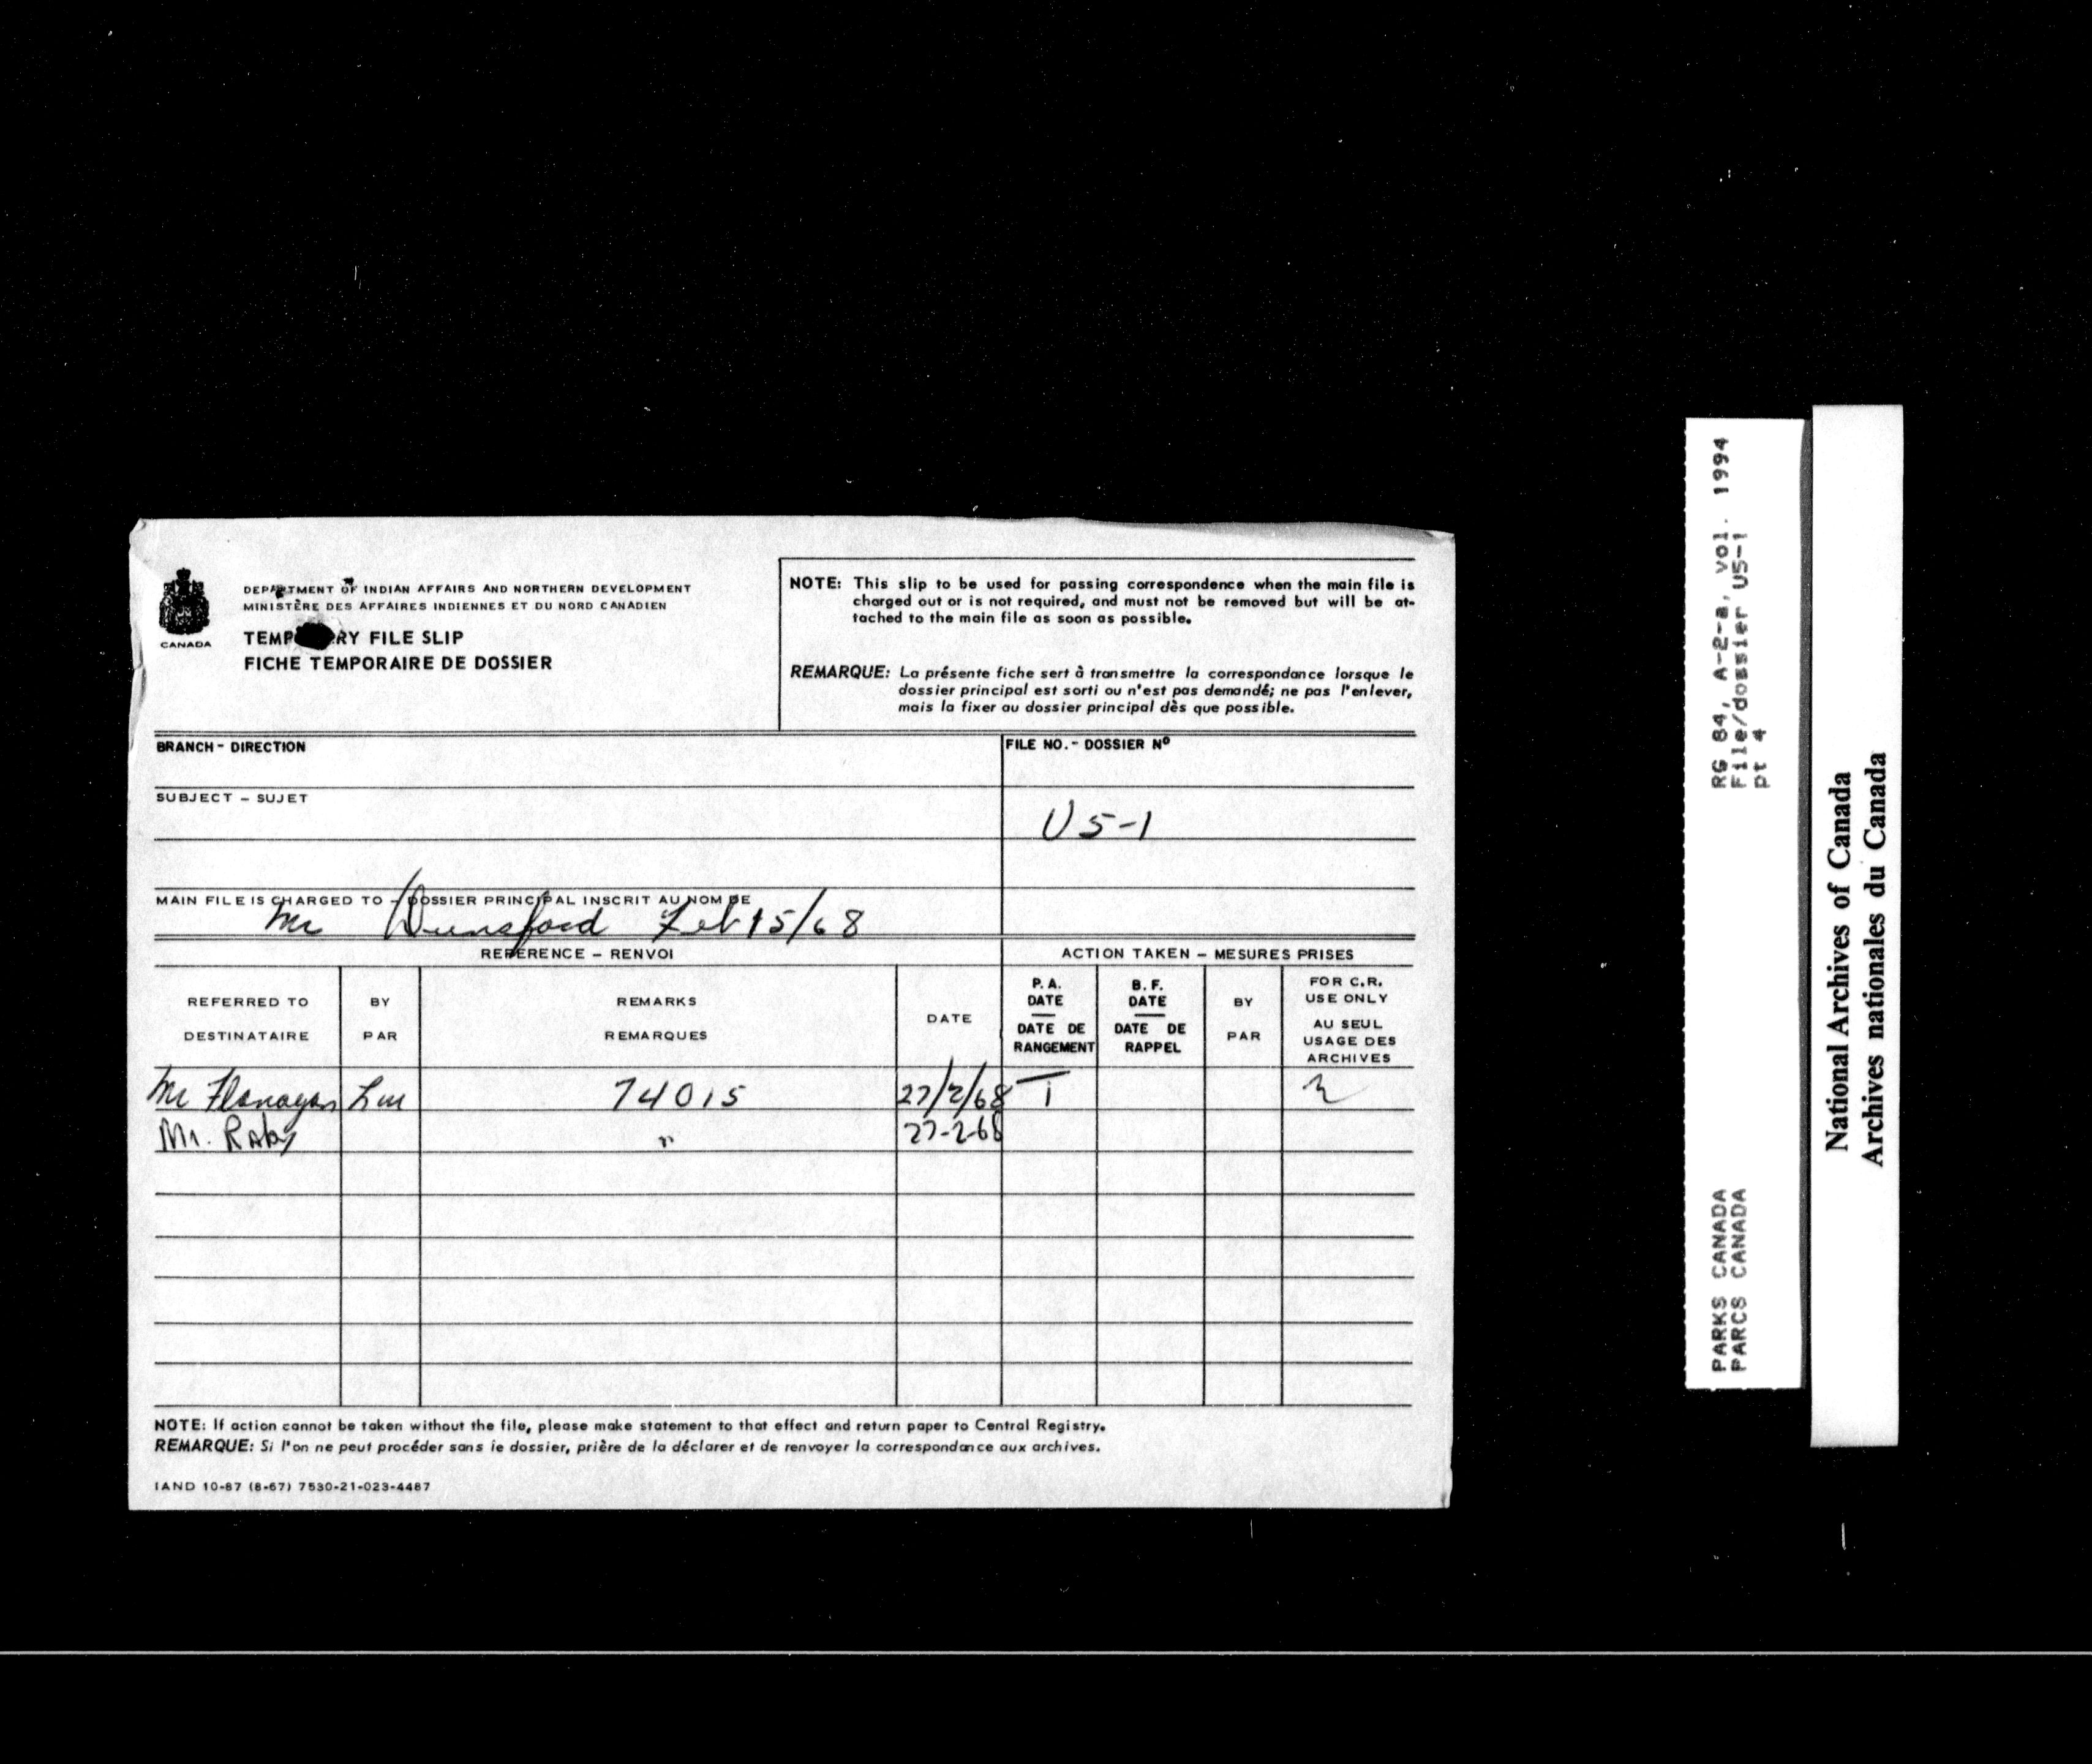 CANADA
DEPARTMENT OF INDIAN AFFAIRS AND NORTHERN DEVELOPMENT
MINISTÈRE DES AFFAIRES INDIENNES ET DU NORD CANADIEN
TEMP RY FILE SLIP
FICHE TEMPORAIRE DE DOSSIER
NOTE: This slip to be used for passing correspondence when the main file is
charged out or is not required, and must not be removed but will be at-
tached to the main file as soon as possible.
REMARQUE: La présente fiche sert à transmettre la correspondance lorsque le
dossier principal est sorti ou n'est pas demandé; ne pas l'enlever,
mais la fixer au dossier principal dès que possible.
BRANCH - DIRECTION
FILE NO. - DOSSIER Nº
SUBJECT - SUJET
U5-1
MAIN FILE IS CHARGED TO - DOSSIER PRINCIPAL INSCRIT AU NOM DE
Mr Dunsford Feb 15/68
REFERENCE - RENVOI
ACTION TAKEN - MESURES PRISES
REFERRED TO
DESTINATAIRE
BY
PAR
REMARKS
REMARQUES
DATE
P.A.
DATE
DATE DE
RANGEMENT
B.F.
DATE
DATE DE
RAPPEL
BY
PAR
FOR C.R.
USE ONLY
AU SEUL
USAGE DES
ARCHIVES
Mr Flanagan 74015 27/2/68
Mr. Raby " 27-2-68
NOTE: If action cannot be taken without the file, please make statement to that effect and return paper to Central Registry.
REMARQUE: Si l'on ne peut procéder sans le dossier, prière de la déclarer et de renvoyer la correspondance aux archives.
IAND 10-87 (8-67) 7530-21-023-4487
RG 84, A-2-a, vol. 1994
File/dossier U5-1
pt 4
PARKS CANADA
PARCS CANADA
National Archives of Canada
Archives nationales du Canada